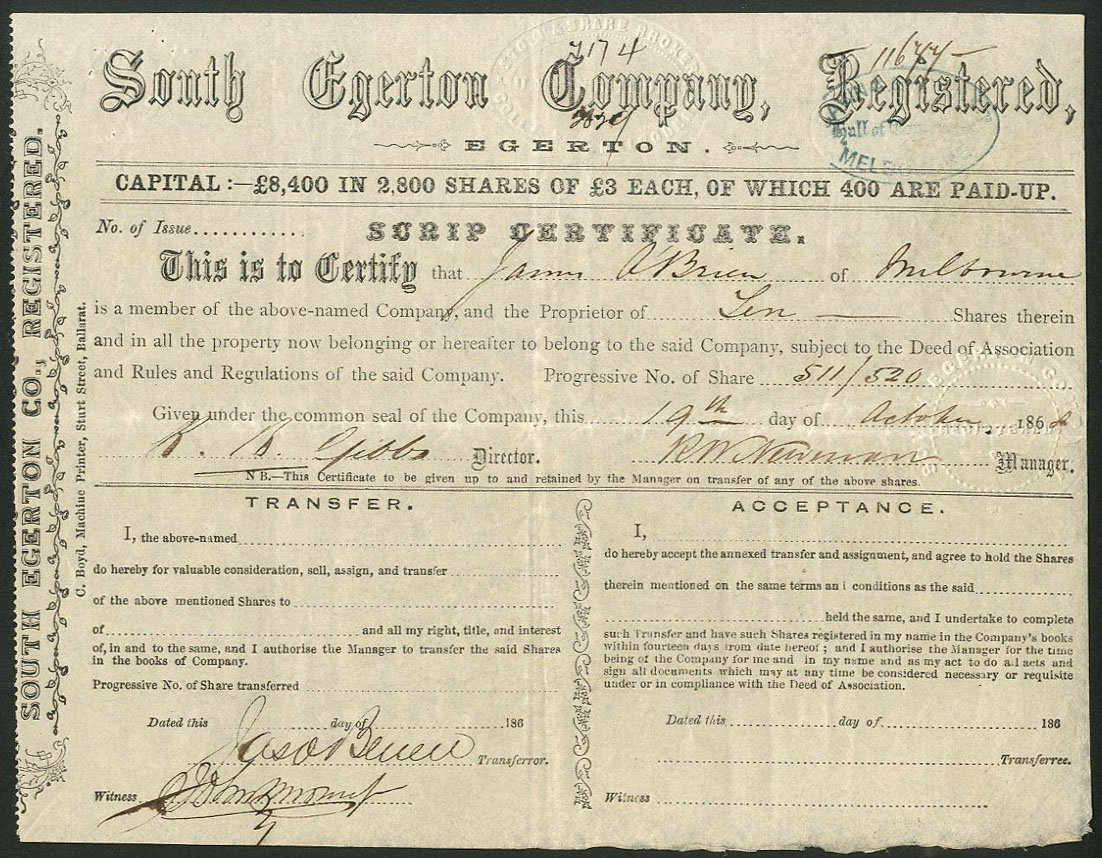 South Egerton Company, Registered,
7174
11677
EGERTON.
Hall of Commerce
MELBOURNE
CAPITAL :—£8,400 IN 2,800 SHARES OF £3 EACH, OF WHICH 400 ARE PAID-UP.
No. of Issue............
SCRIP CERTIFICATE.
This is to Certify that James O'Brien of Melbourne
is a member of the above-named Company, and the Proprietor of Ten Shares therein
and in all the property now belonging or hereafter to belong to the said Company, subject to the Deed of Association
and Rules and Regulations of the said Company. Progressive No. of Share 511/520
Given under the common seal of the Company, this 19th day of October 1868
K. K. Gibbs Director. R W Newman Manager.
N B.—This Certificate to be given up to and retained by the Manager on transfer of any of the above shares.
TRANSFER.
I, the above-named
do hereby for valuable consideration, sell, assign, and transfer
of the above mentioned Shares to
of and all my right, title, and interest
of, in and to the same, and I authorise the Manager to transfer the said Shares
in the books of Company.
Progressive No. of Share transferred
Dated this day of 186
Jas O'Brien Transferror.
Witness
ACCEPTANCE.
I,
do hereby accept the annexed transfer and assignment, and agree to hold the Shares
therein mentioned on the same terms and conditions as the said
held the same, and I undertake to complete
such Transfer and have such Shares registered in my name in the Company's books
within fourteen days from date hereof ; and I authorise the Manager for the time
being of the Company for me and in my name and as my act to do all acts and
sign all documents which may at any time be considered necessary or requisite
under or in compliance with the Deed of Association.
Dated this day of 186
Transferree.
Witness
SOUTH EGERTON CO., REGISTERED.
C. Boyd, Machine Printer, Sturt Street, Ballarat.